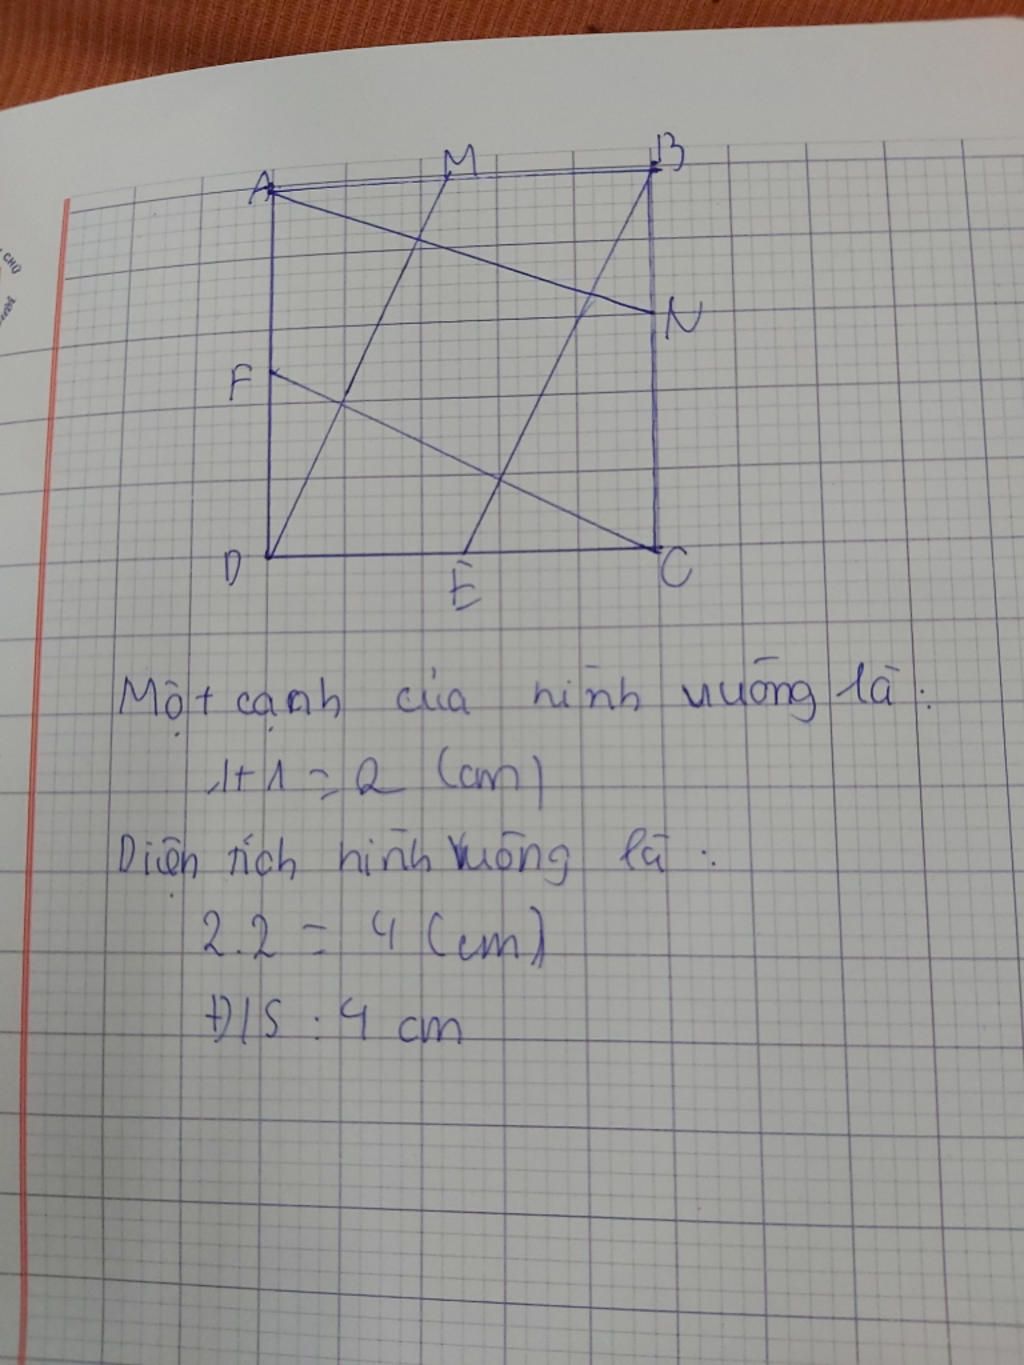 A M B
F N
D E C
Một cạnh của hình vuông là:
1+1 = 2 (cm)
Diện tích hình vuông là:
2.2 = 4 (cm)
Đ/S : 4 cm